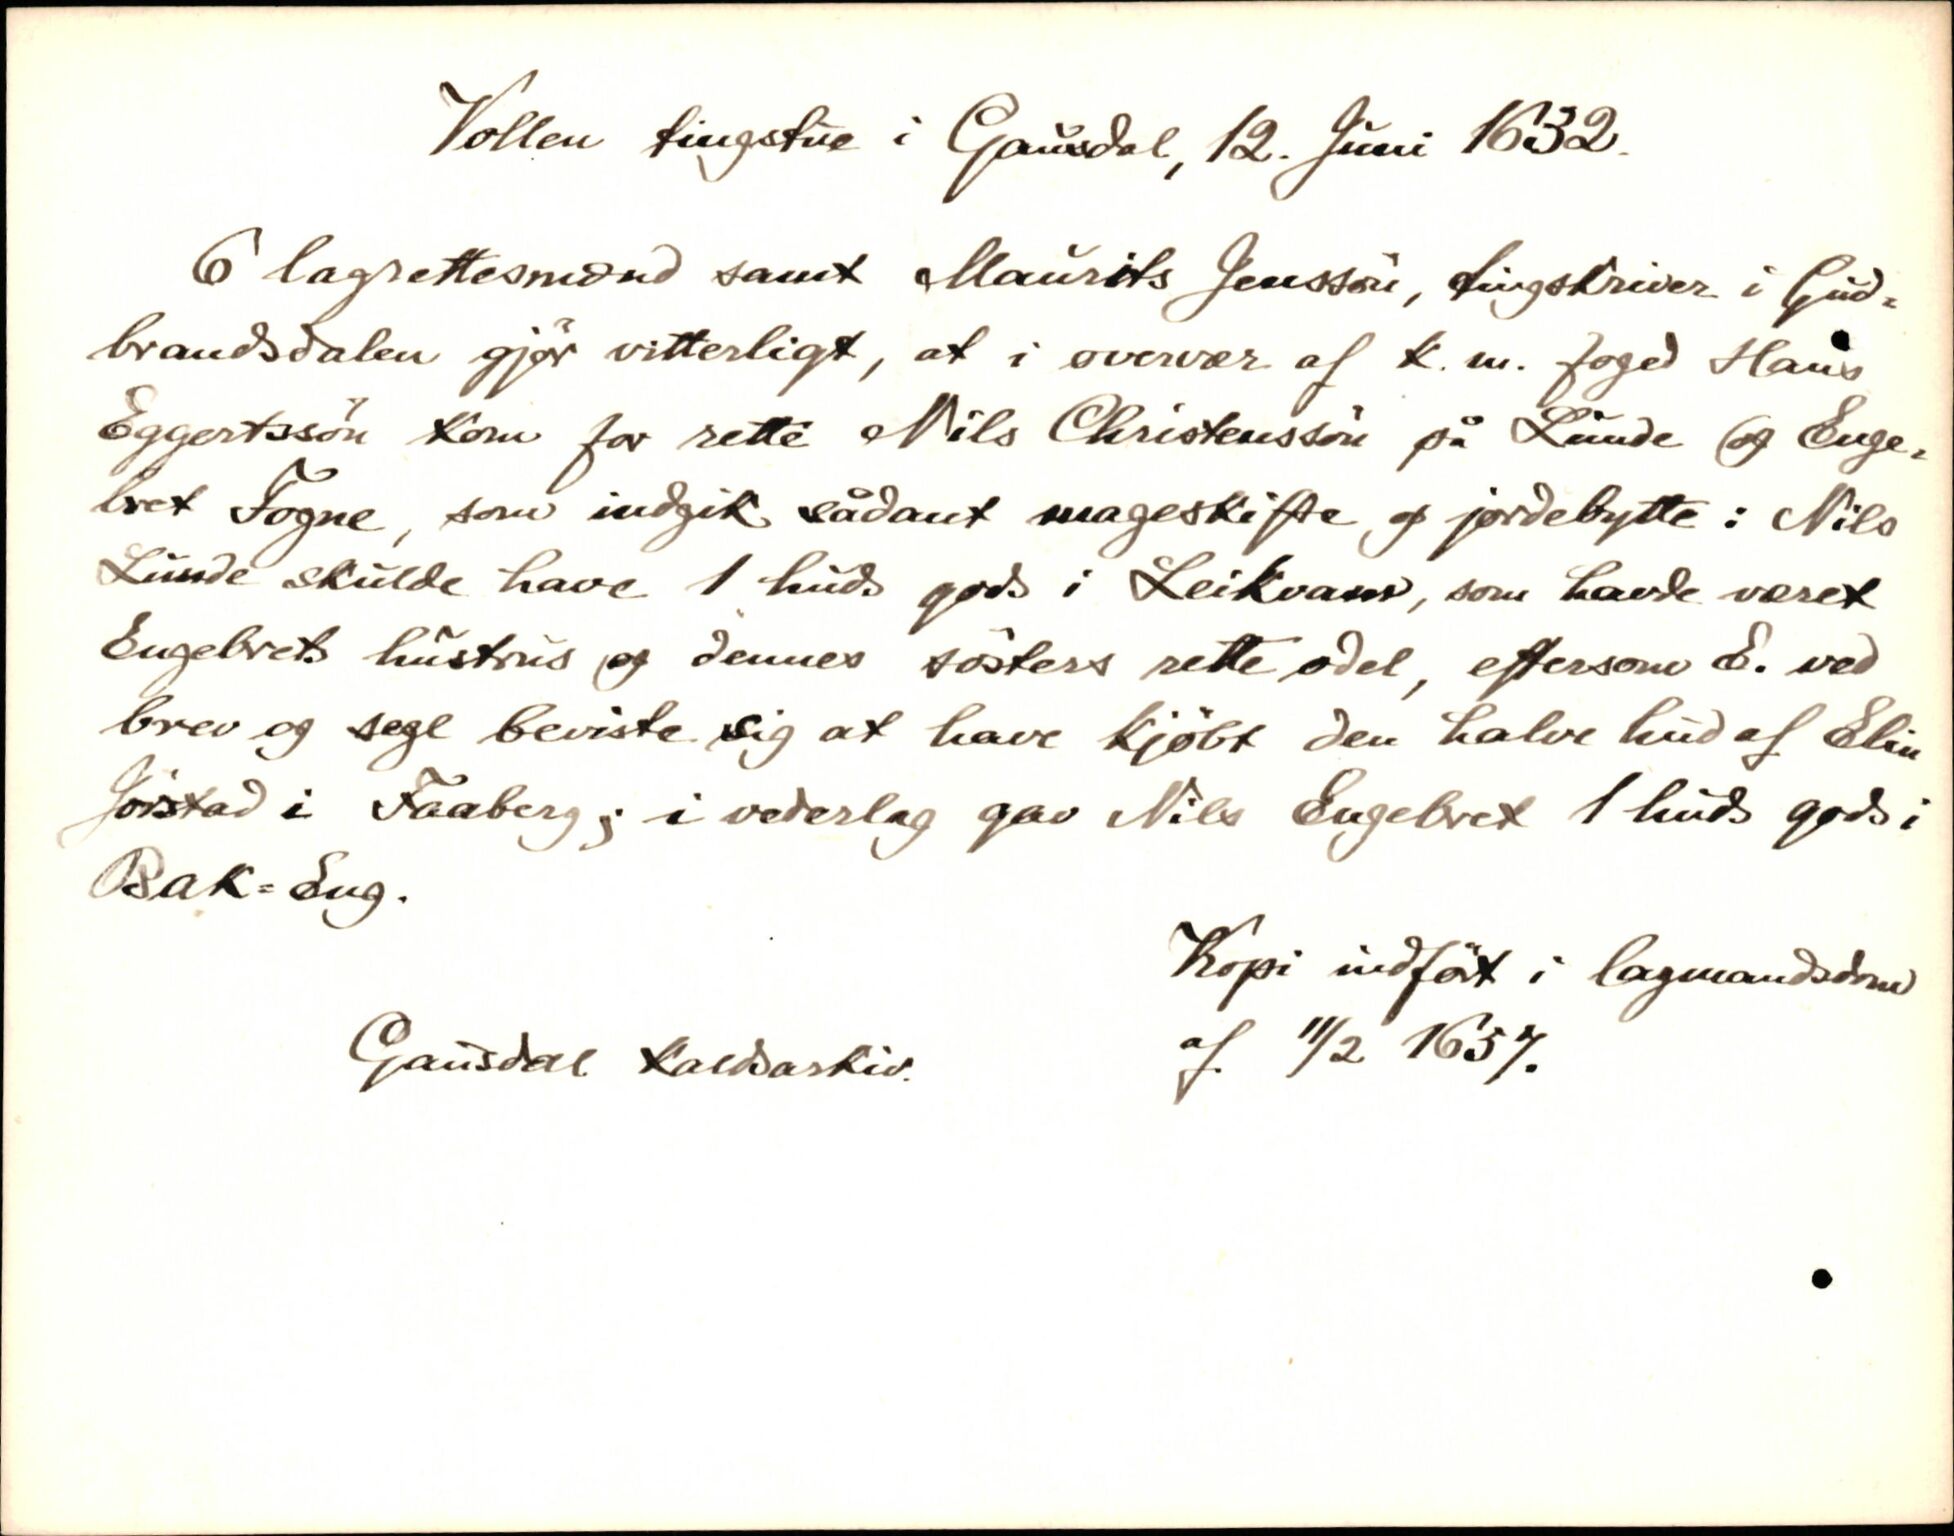 Vollen tingstue i Gausdal, 12. Juni 1632.
6 lagrettesmænd samt Maurits Jenssön, tingskriver i Gud-
brandsdalen gjör vitterligt, at i overvær af k. m. foged Hans
Eggertssön kom for rette Nils Christenssön på Lunde og Enge-
bret Fogne, som indgik sådant mageskifte og jordebytte: Nils
Lunde skulde have 1 huds gods i Leikvam, som havde været
Engebrets hustrus og dennes sösters rette odel, eftersom E. ved
brev og segl beviste sig at have kjöbt den halve hud af Elin
Jörstad i Faaberg; i vederlag gav Nils Engebret 1 huds gods i
Bak-Eng.
Kopi indfört i lagmandsdom
af 11/2 1657.
Gausdal kaldsarkiv.